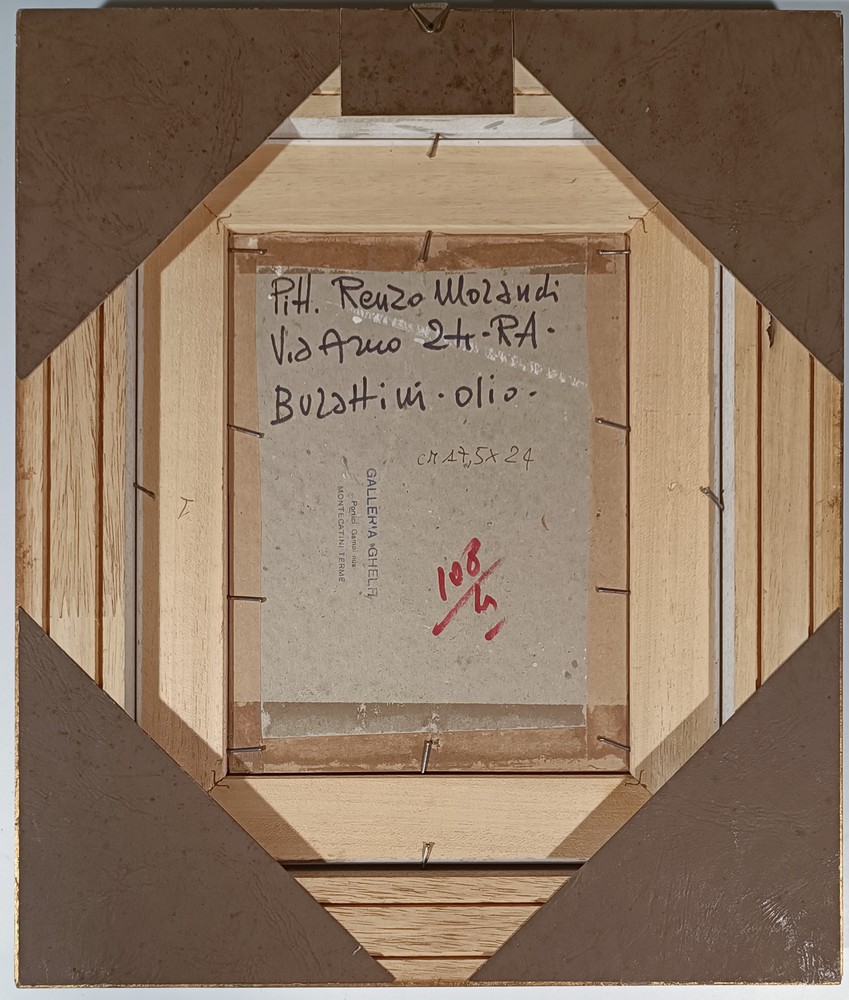 Pitt. Renzo Morandi
Via Arno 24-RA-
Burattini-olio-
cm 17,5x24
GALLERIA GHELFI
MONTECATINI TERME
108/4